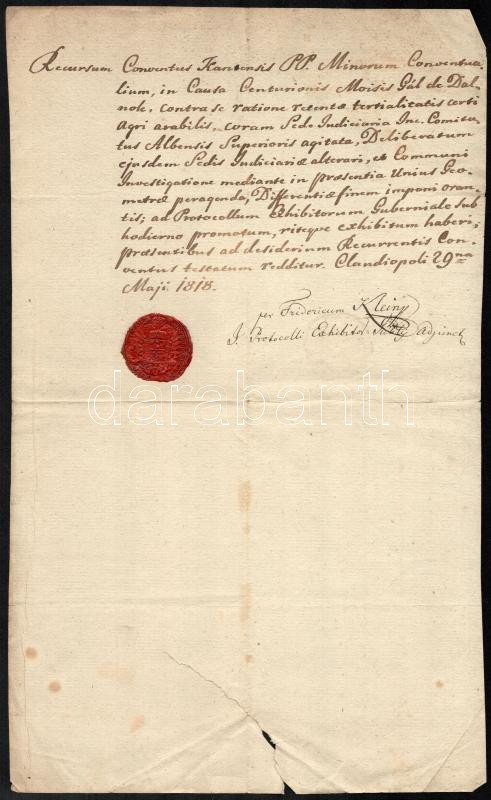 Recursum Conventus Kantensis PP. Minorum Conventua-
lium, in Causa Centurionis Moisis Gál de Dal-
nok, contra se ratione retentæ tertialitatis certi
Agri arabilis, coram Sede Judiciaria Inc. Comita-
tus Albensis Superioris agitata, Deliberatum
ejusdem Sedis Judiciariæ alterari, et Communi
Investigatione mediante in præsentia Unius Geo-
metræ peragenda, Differentiæ finem imponi oran-
tis; ad Protocollum Exhibitorum Guberniale sub
hodierno promotum, riteque exhibitum haberi,
præsentibus ad desiderium Recurrentis Con-
ventus testatum redditur. Claudiopoli 29na
Maji 1818.
per Fridericum Klein
Protocolli Exhibitor Adjunct
darabanth